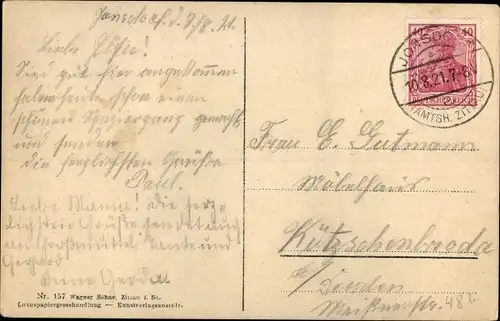 Jonsdorf, d. 9/8. 21.
Liebe Elsie!
Sind gut hier angekommen
haben heute schon einen
schönen Spaziergang gemacht
und senden
die herzlichsten Grüße
Paul.
Liebe Mama! die herz-
lichsten Grüße sendet auch
an Großmuttel, Tante und
Gerhard
Nr. 157 Wagner Söhne, Zittau i. Sa.
Luxuspapiergrosshandlung — Kunstverlagsanstalt.
40 40
JONSDORF
10.8.21.7-8
(AMTSH. ZITTAU)
Frau E. Gutmann
Möbelhaus
Kötzschenbroda
b/
Dresden
Meißnerstr. 48b